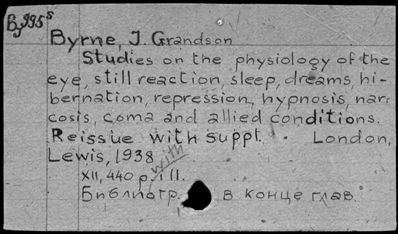 B995s
Byrne, J. Grandson
Studies on the physiology of the
eye, still reaction, sleep, dreams, hi-
bernation, repression, hypnosis, nar-
cosis, coma and allied conditions.
Reissue with suppt. · London,
Lewis, 1938.
with
XII, 440 p. ill.
Библиогр. в конце глав.